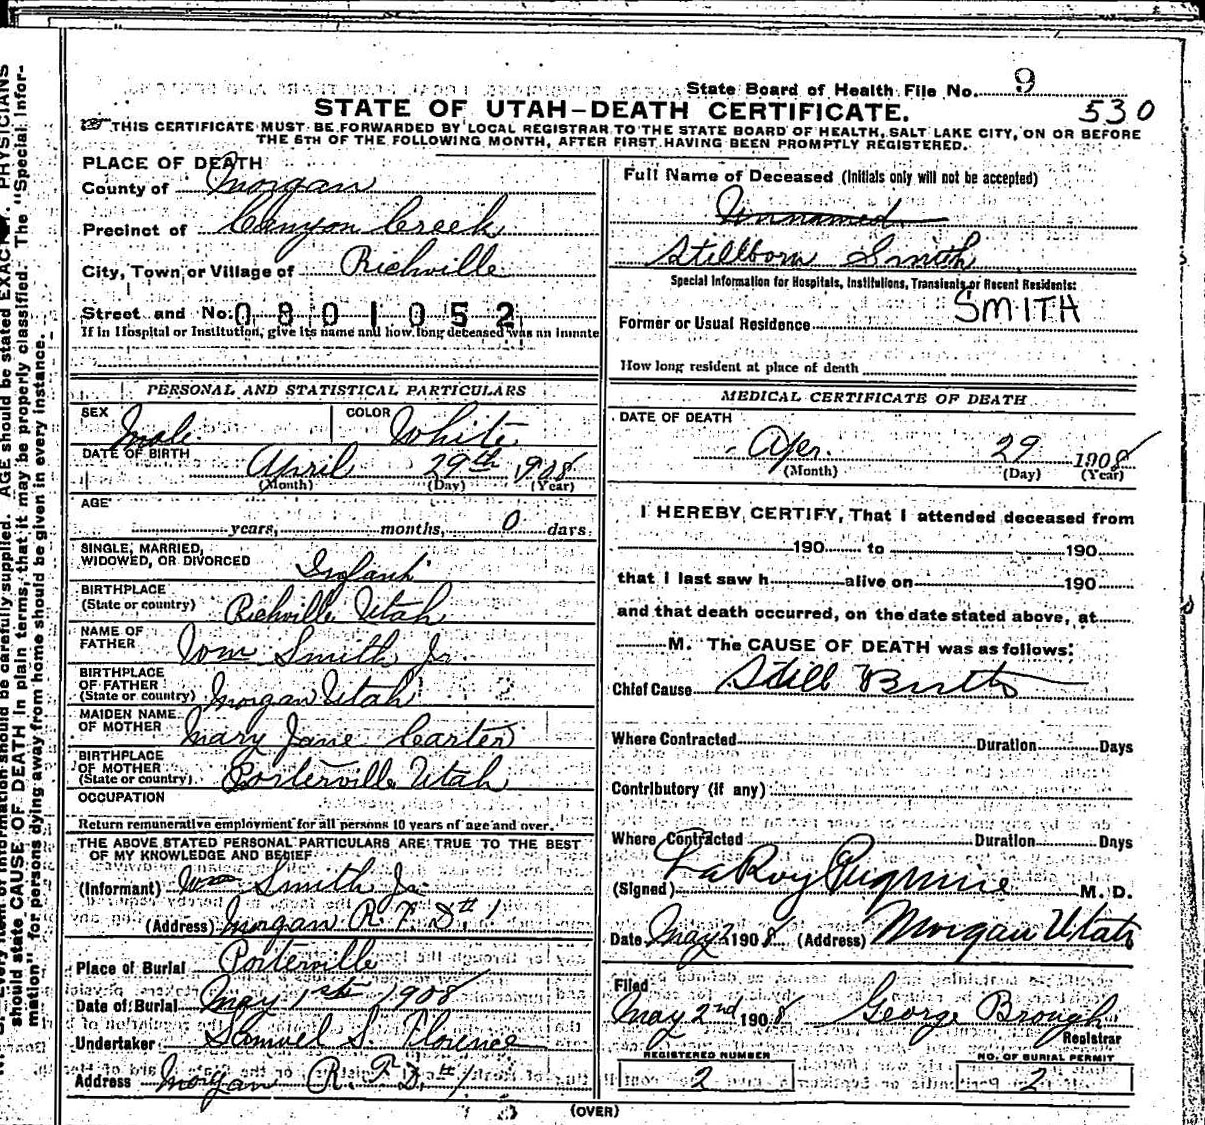 State Board of Health File No. 9
530
STATE OF UTAH-DEATH CERTIFICATE.
THIS CERTIFICATE MUST BE FORWARDED BY LOCAL REGISTRAR TO THE STATE BOARD OF HEALTH, SALT LAKE CITY, ON OR BEFORE
THE 5TH OF THE FOLLOWING MONTH, AFTER FIRST HAVING BEEN PROMPTLY REGISTERED.
PLACE OF DEATH
County of Morgan
Precinct of Canyon Creek
City, Town or Village of Richville
Street and No. 0801052
If in Hospital or Institution, give its name and how long deceased was an inmate
PERSONAL AND STATISTICAL PARTICULARS
SEX Male. COLOR White
DATE OF BIRTH April 29th 1908
(Month) (Day) (Year)
AGE
years, months, 0 days.
SINGLE, MARRIED,
WIDOWED, OR DIVORCED Infant
BIRTHPLACE
(State or country) Richville Utah
NAME OF
FATHER Wm Smith Jr.
BIRTHPLACE
OF FATHER
(State or country) Morgan Utah
MAIDEN NAME
OF MOTHER Mary Jane Carter
BIRTHPLACE
OF MOTHER
(State or country) Porterville Utah
OCCUPATION
Return remunerative employment for all persons 10 years of age and over.
THE ABOVE STATED PERSONAL PARTICULARS ARE TRUE TO THE BEST
OF MY KNOWLEDGE AND BELIEF
(Informant) Wm Smith Jr.
(Address) Morgan R.F.D. #1
Place of Burial Porterville
Date of Burial May 1st 1908
Undertaker Samuel S. Florence
Address Morgan R.F.D. #1
Full Name of Deceased (Initials only will not be accepted)
Unnamed
Stillborn Smith
Special Information for Hospitals, Institutions, Transients or Recent Residents:
SMITH
Former or Usual Residence
How long resident at place of death
MEDICAL CERTIFICATE OF DEATH
DATE OF DEATH
Apr. 29 1908
(Month) (Day) (Year)
I HEREBY CERTIFY, That I attended deceased from
190 to 190
that I last saw h alive on 190
and that death occurred, on the date stated above, at
M. The CAUSE OF DEATH was as follows:
Chief Cause Still Birth
Where Contracted Duration Days
Contributory (if any)
Where Contracted Duration Days
(Signed) LaRoy Pugmire M. D.
Date May 2 1908 (Address) Morgan Utah
Filed
May 2nd 1908 George Brough
Registrar
REGISTERED NUMBER
2
NO. OF BURIAL PERMIT
2
(OVER)
should state CAUSE OF DEATH in plain terms, that it may be properly classified. The "Special Infor-
mation" for persons dying away from home should be given in every instance.